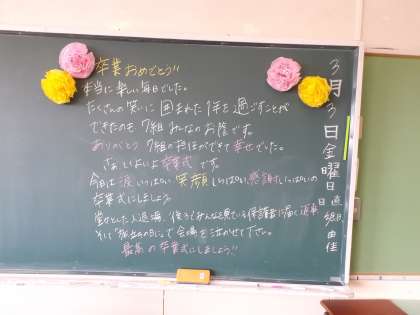 卒業おめでとう!!
本当に楽しい毎日でした。
たくさんの笑いに囲まれた1年を過ごすことが
できたのも7組みんなのお陰です。
ありがとう 7組の担任ができて幸せでした。
さぁ、いよいよ卒業式です。
今日は涙いっぱい 笑顔いっぱい 感謝いっぱいの
卒業式にしましょう
堂々とした入退場、後ろでみんなを見ている保護者に届く返事
そして"旅立ちの日に"で会場を泣かせて下さい。
最高の卒業式にしましょう!!
3月3日金曜日
日直